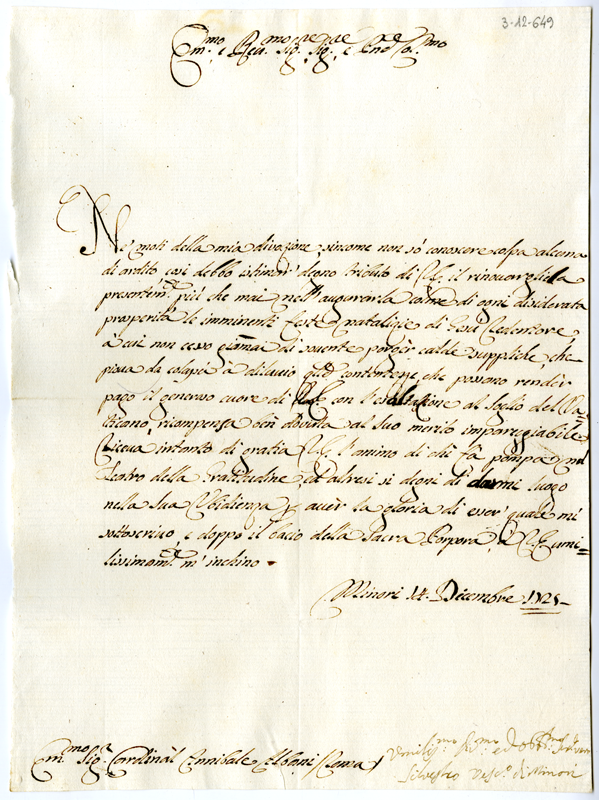 3-12-649
Em.mo e Rev.mo Sig.re Sig.re e Pne Col.mo
Ne' moti della mia divozione, sicome non só conoscere colpa alcuna
di ardito, così debbo istimar' degno tributo di V.E. il rinuovargliela
presentem.te più che mai nell'augurarla colme di ogni disiderata
prosperità le imminenti feste natalizie di Giesù Redentore,
à cui non cesso giamai di sovente porger calde suppliche, che
piova da colapsù à diluvio quelle contentezze, che possono render
pago il generoso cuore di V.E. con l'esaltazione al soglio del Va=
ticano, ricompensa ben dovuta al suo merito impareggiabile
Riceva intanto di gratia V.E. l'animo di chi fà pompa nel
Teatro della Gratitudine, ed altresi si degni di darmi luogo
nella sua Ubidienza p aver la gloria di esser' quale mi
sottoscrivo, e doppo il bacio della Sacra Porpora, à V.E. umi=
lissimam.te m'inchino.
Minori 14. Dicembre 1725
Em.mo Sig.r Cardinàl Annibale Albani (Roma)
Umiliss.mo ed obb.mo
Silvestro Vesc.o di Minori